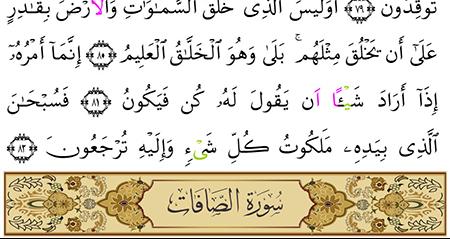 تُوقِدُونَ ﴿٧٩﴾ أَوَلَيْسَ ٱلَّذِى خَلَقَ ٱلسَّمَـٰوَٰتِ وَٱلْأَرْضَ بِقَـٰدِرٍ
عَلَىٰٓ أَن يَخْلُقَ مِثْلَهُم ۚ بَلَىٰ وَهُوَ ٱلْخَلَّـٰقُ ٱلْعَلِيمُ ﴿٨٠﴾ إِنَّمَآ أَمْرُهُۥٓ
إِذَآ أَرَادَ شَيْـًٔا أَن يَقُولَ لَهُۥ كُن فَيَكُونُ ﴿٨١﴾ فَسُبْحَـٰنَ
ٱلَّذِى بِيَدِهِۦ مَلَكُوتُ كُلِّ شَىْءٍ وَإِلَيْهِ تُرْجَعُونَ ﴿٨٣﴾
سُورَةُ الصَّافَّات